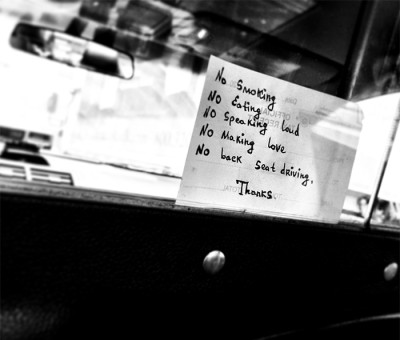 No Smoking
No Eating
No Speaking loud
No Making love
No back Seat driving.
Thanks